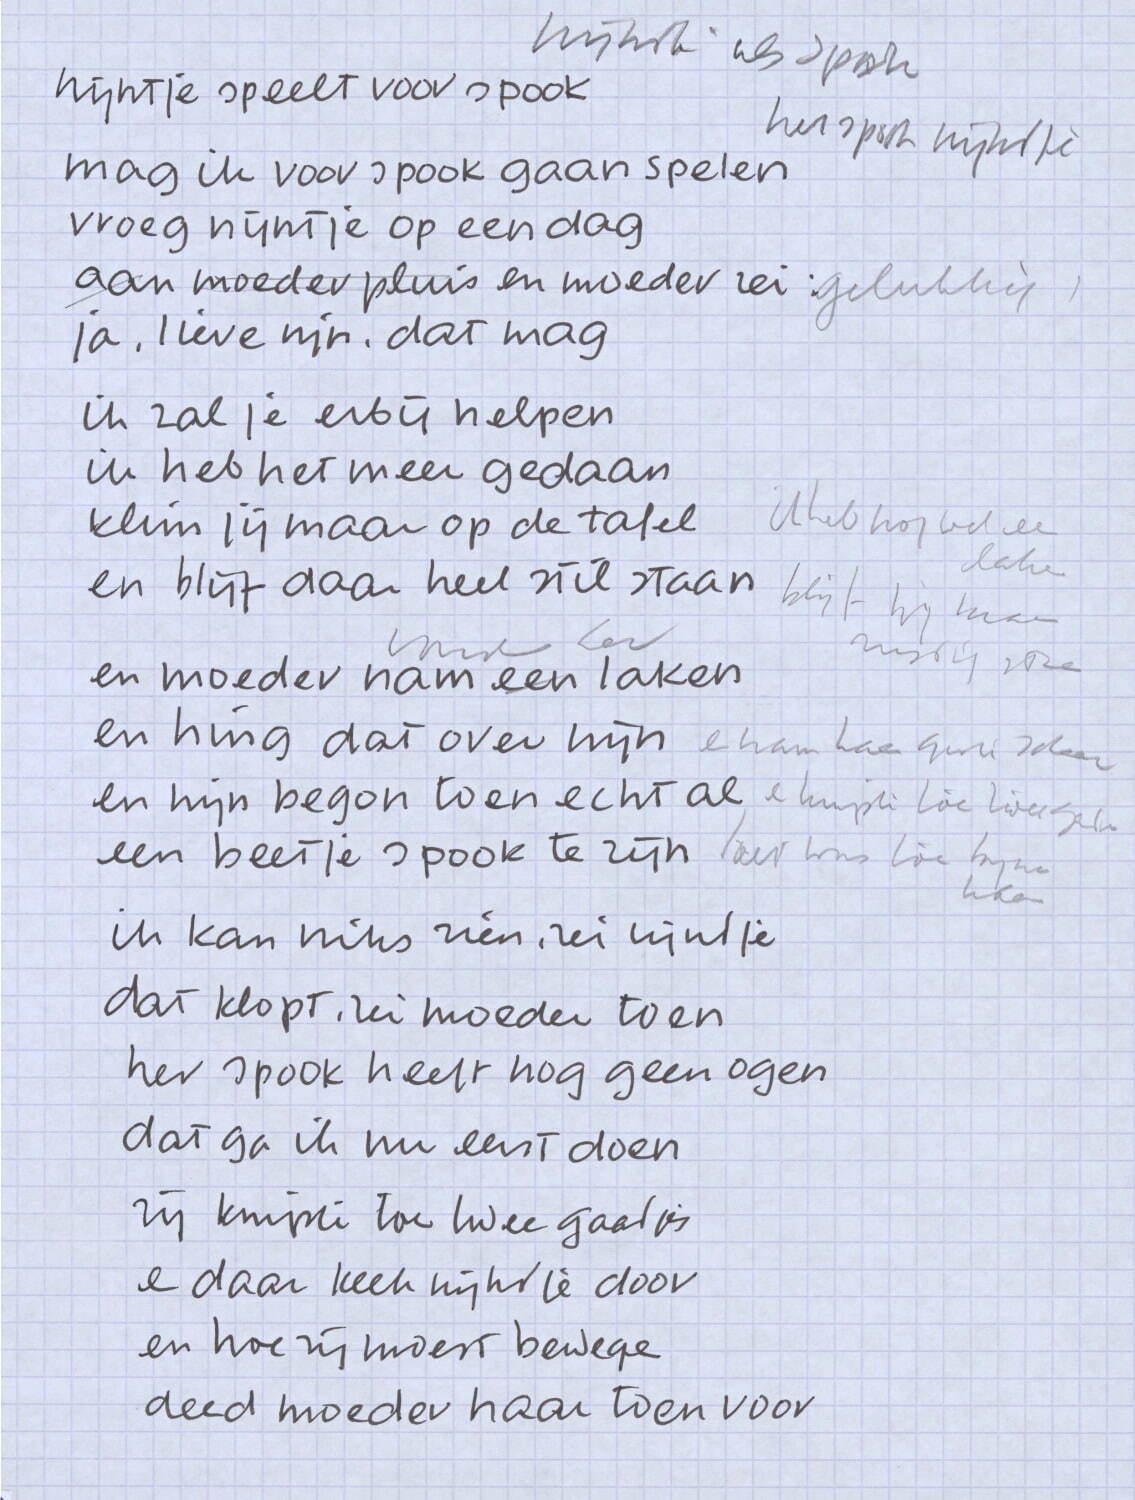 nijntje als spook
nijntje speelt voor spook
het spook nijntje
mag ik voor spook gaan spelen
vroeg nijntje op een dag
aan moeder pluis en moeder zei : gelukkig
ja, lieve nijn, dat mag
ik zal je erbij helpen
ik heb het meer gedaan
klim jij maar op de tafel
ik heb nog wel een
laken
en blijf daar heel stil staan
blijf jij maar
rustig staan
en moeder nam een laken
en hing dat over nijn
en nam haar grote schaar
en nijn begon toen echt al
en knipte toen twee gaatjes
een beetje spook te zijn
ik kan niks zien, zei nijntje
dat klopt, zei moeder toen
het spook heeft nog geen ogen
dat ga ik nu eerst doen
zij knipte toen twee gaatjes
en daar keek nijntje door
en hoe zij moest bewegen
deed moeder haar toen voor